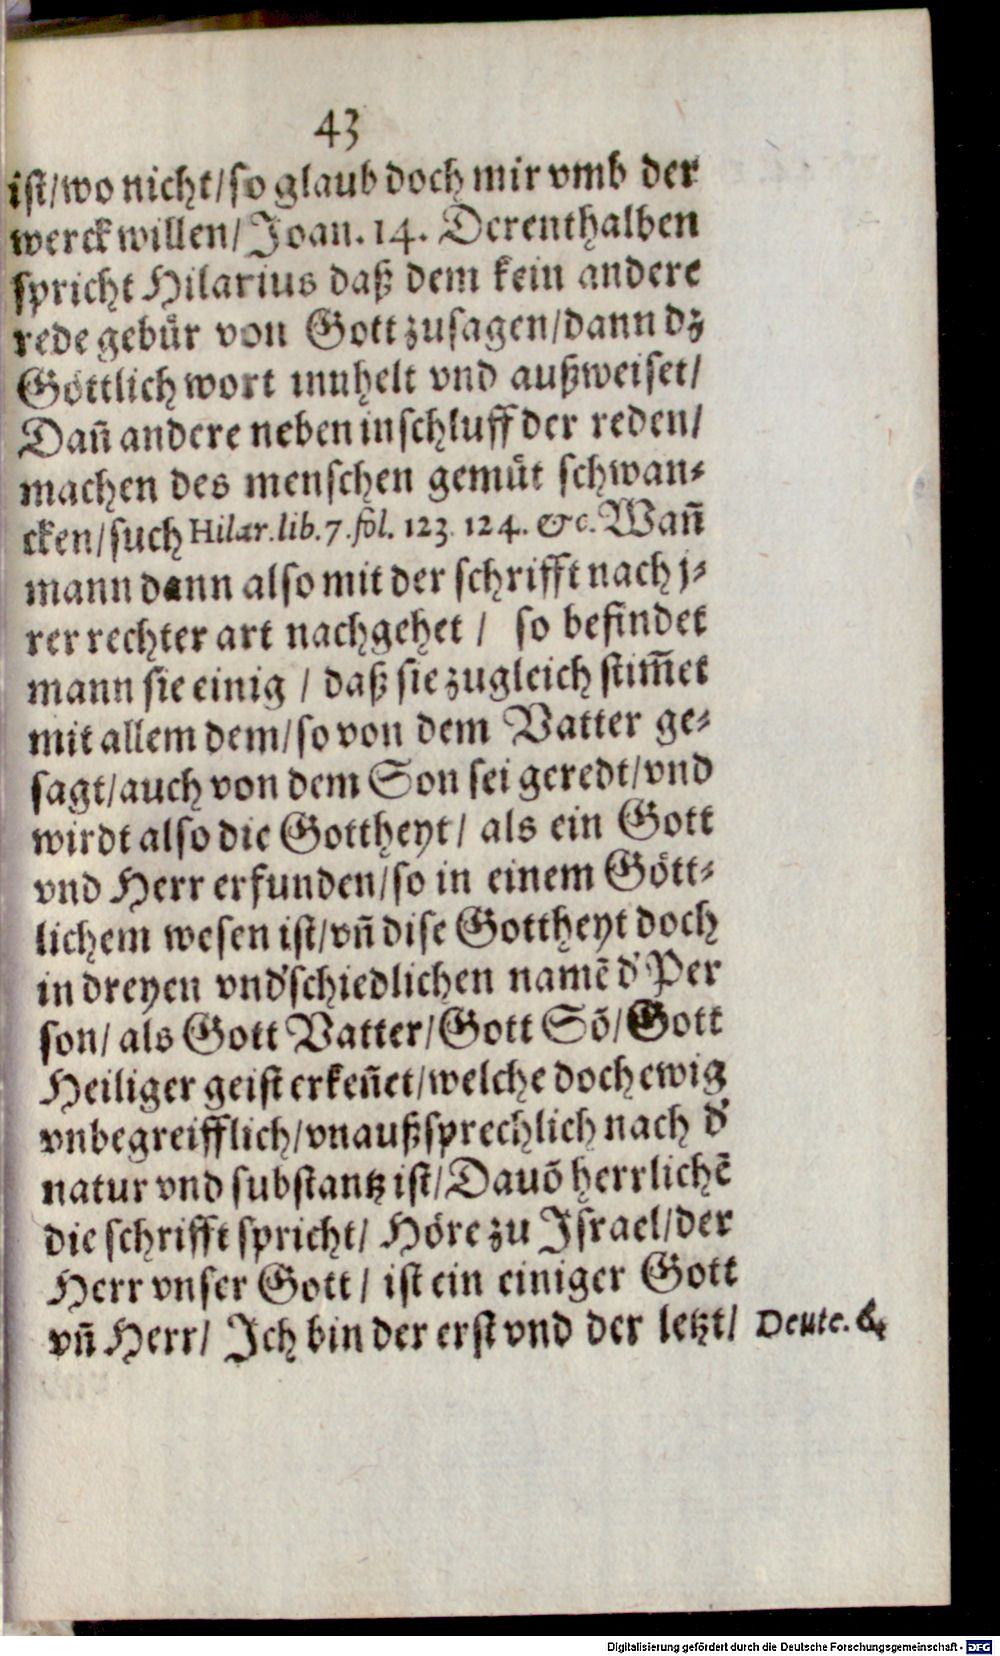 43
ist/wo nicht/so glaub doch mir vmb der
werck willen/Joan. 14. Derenthalben
spricht Hilarius daß dem kein andere
rede gebür von Gott zusagen/dann dz
Göttlich wort innhelt vnd außweiset/
Dañ andere neben inschluff der reden/
machen des menschen gemüt schwan⸗
cken/such Hilar. lib. 7. fol. 123. 124. &c. Wañ
mann dann also mit der schrifft nach j⸗
rer rechter art nachgehet / so befindet
mann sie einig / daß sie zugleich stim̃et
mit allem dem/so von dem Vatter ge⸗
sagt/auch von dem Son sei geredt/vnd
wirdt also die Gottheyt/ als ein Gott
vnd Herr erfunden/so in einem Gött⸗
lichem wesen ist/vñ dise Gottheyt doch
in dreyen vnd'schiedlichen namẽ d' Per
son/ als Gott Vatter/Gott Sõ/Gott
Heiliger geist erkeñet/welche doch ewig
vnbegreifflich/vnaußsprechlich nach d'
natur vnd substantz ist/Dauõ herrlichẽ
die schrifft spricht/ Höre zu Jsrael/der
Herr vnser Gott/ ist ein einiger Gott
vñ Herr/ Jch bin der erst vnd der letzt/ Deute. 6.
Digitalisierung gefördert durch die Deutsche Forschungsgemeinschaft - DFG